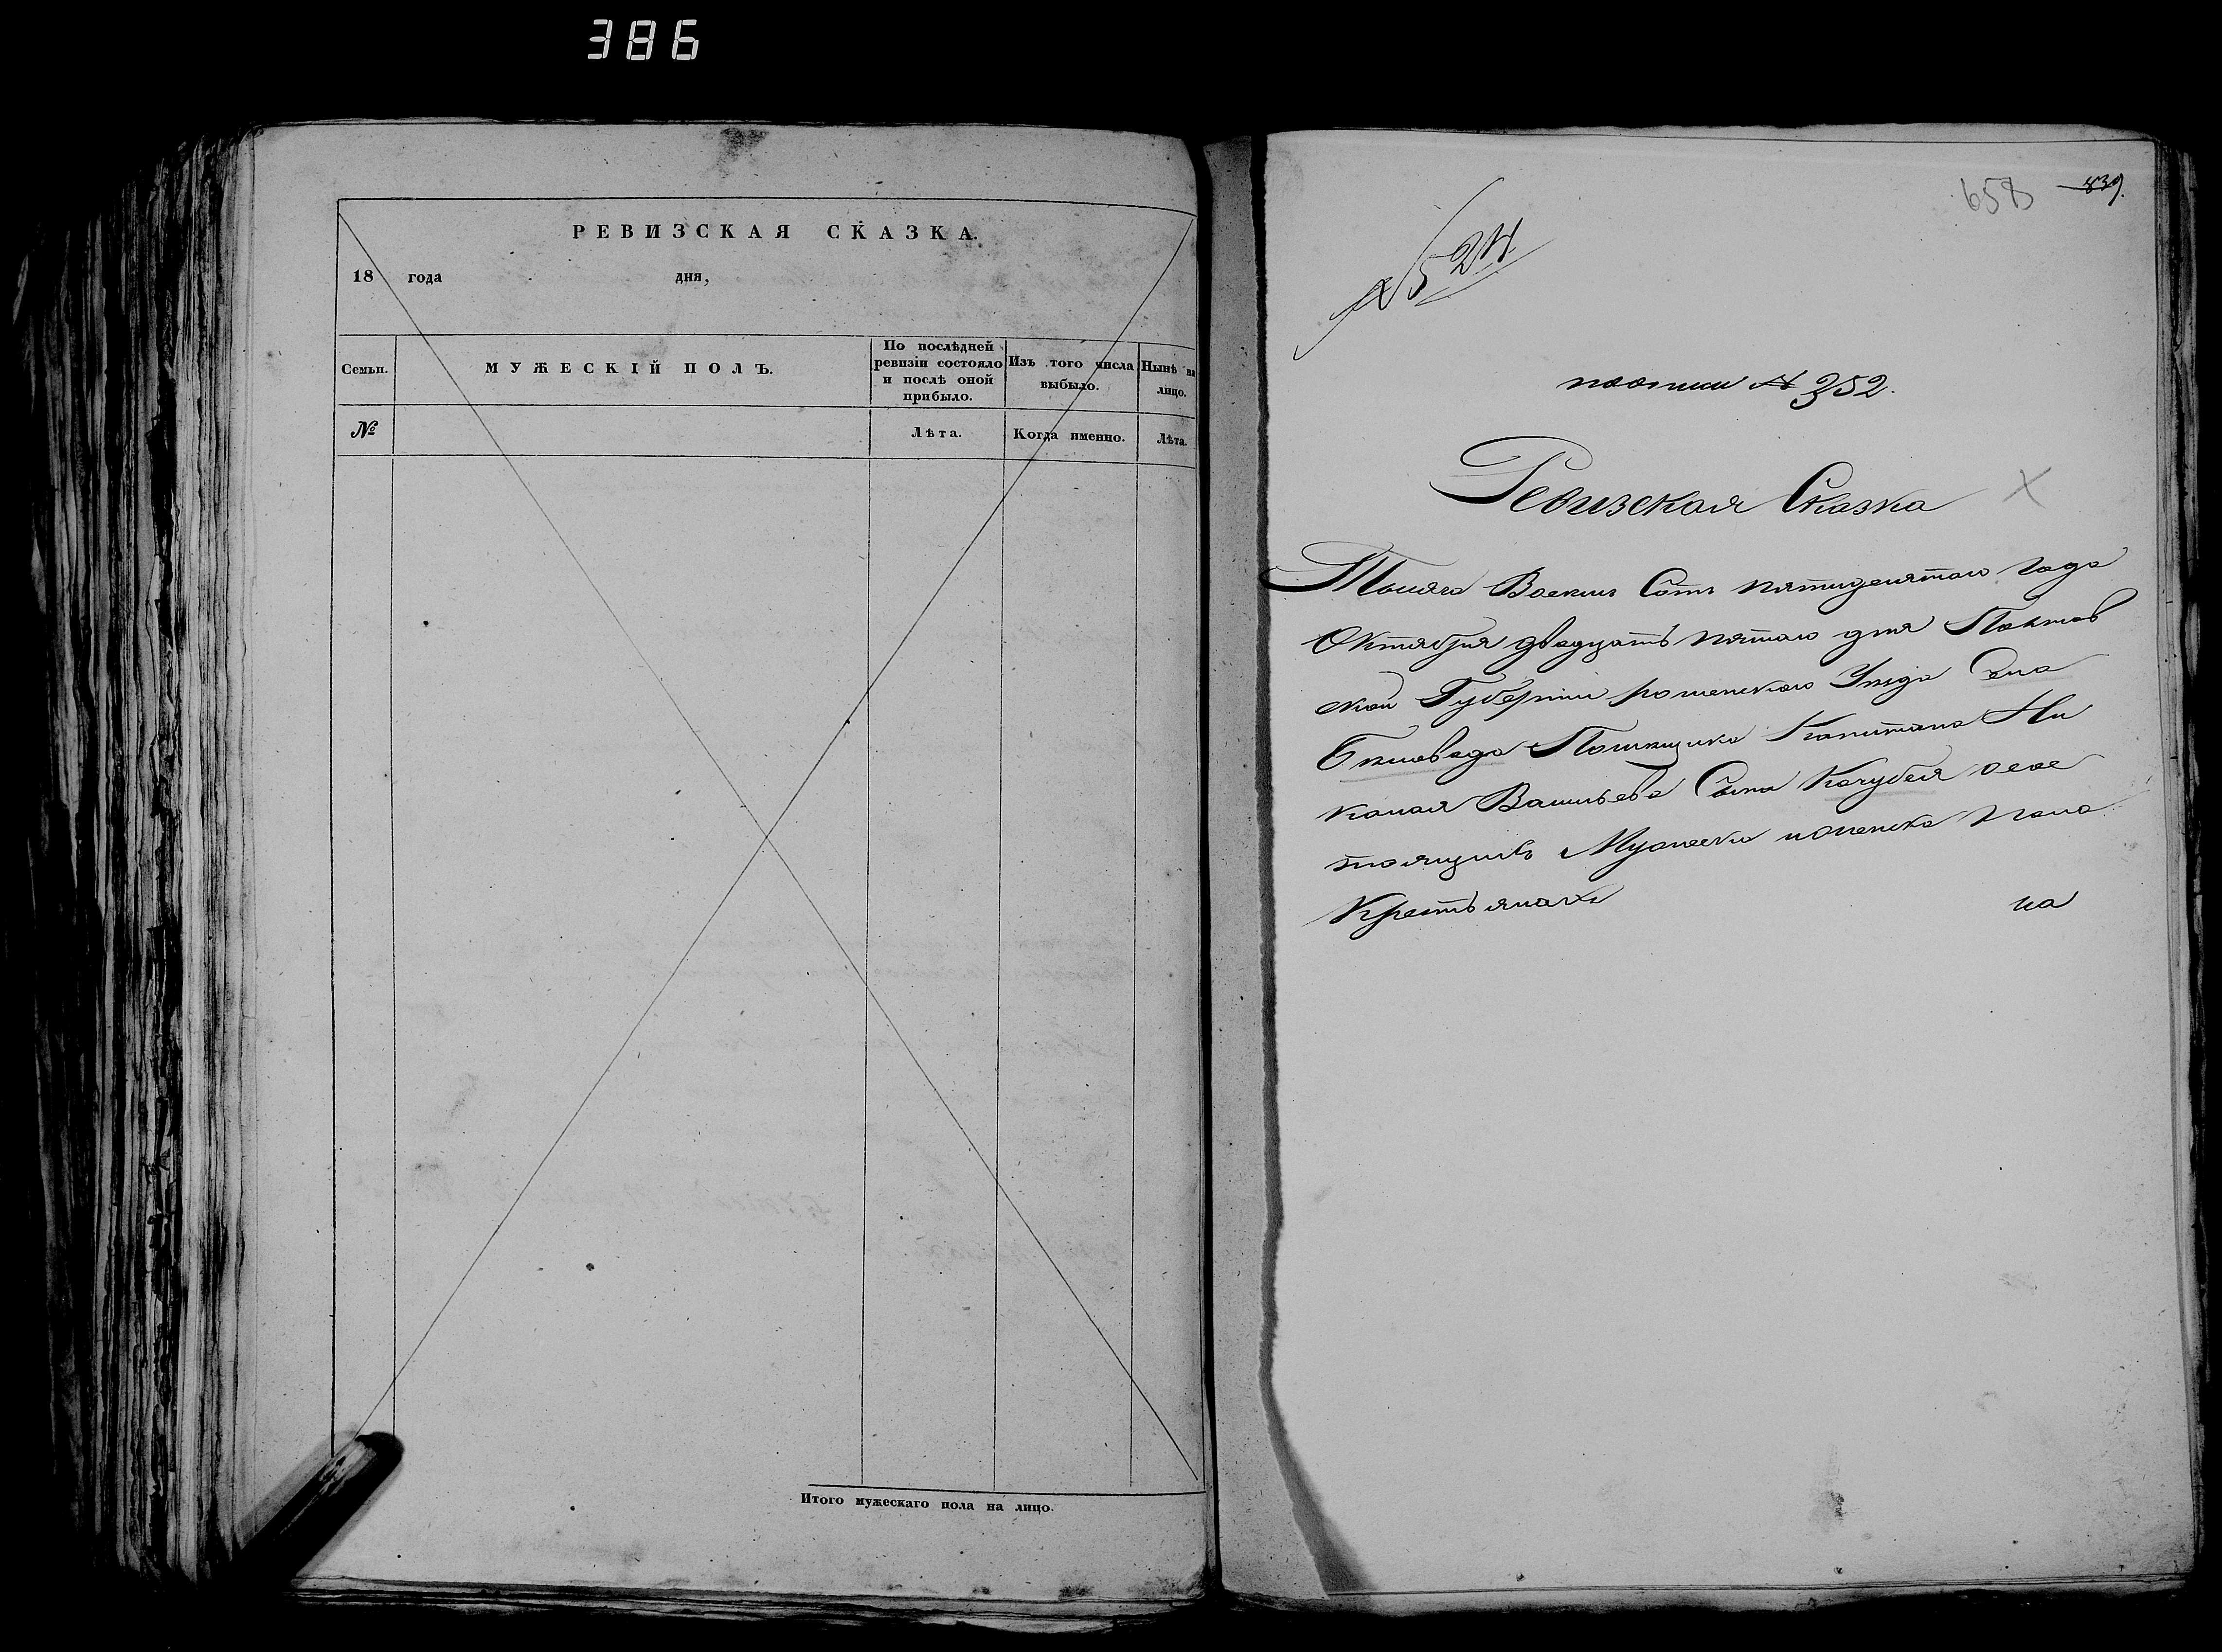 386
РЕВИЗСКАЯ СКАЗКА.
18 года дня,
Семьи.
МУЖЕСКІЙ ПОЛЪ.
По послѣдней ревизіи состояло и послѣ оной прибыло.
Изъ того числа выбыло.
Нынѣ на лицо.
№
Лѣта.
Когда именно.
Лѣта.
Итого мужескаго пола на лицо.
658 839.
№ 352.
Ревизская Сказка
Тысяча Восемь Сотъ пятидесятого года
Октября двадцать пятого дня Полтав
ской Губерніи роменского Уезда Села
Бѣловода Помещика Капитана Ни
колая Васильева Сына Кочубея о сос
тоящихъ Мужеска и женска пола
Крестьянахъ
на